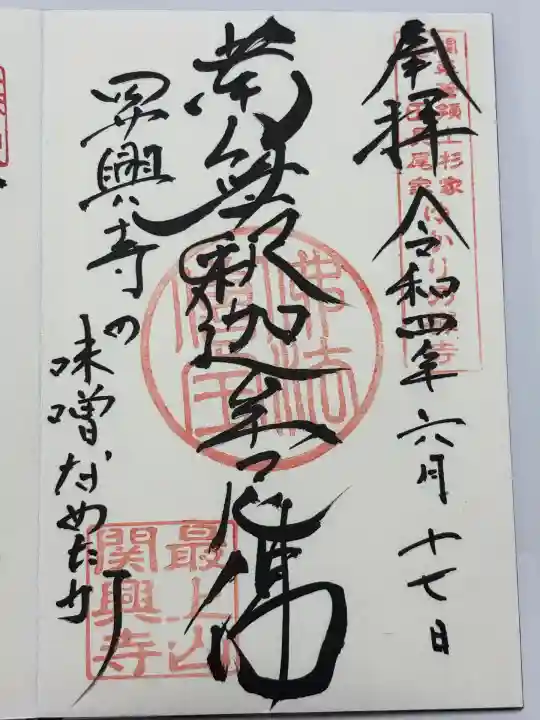 奉拝 令和四年六月十七日
南無釈迦牟尼佛
関興寺の
味噌なめたか
佛法
僧宝
最上山
関興寺